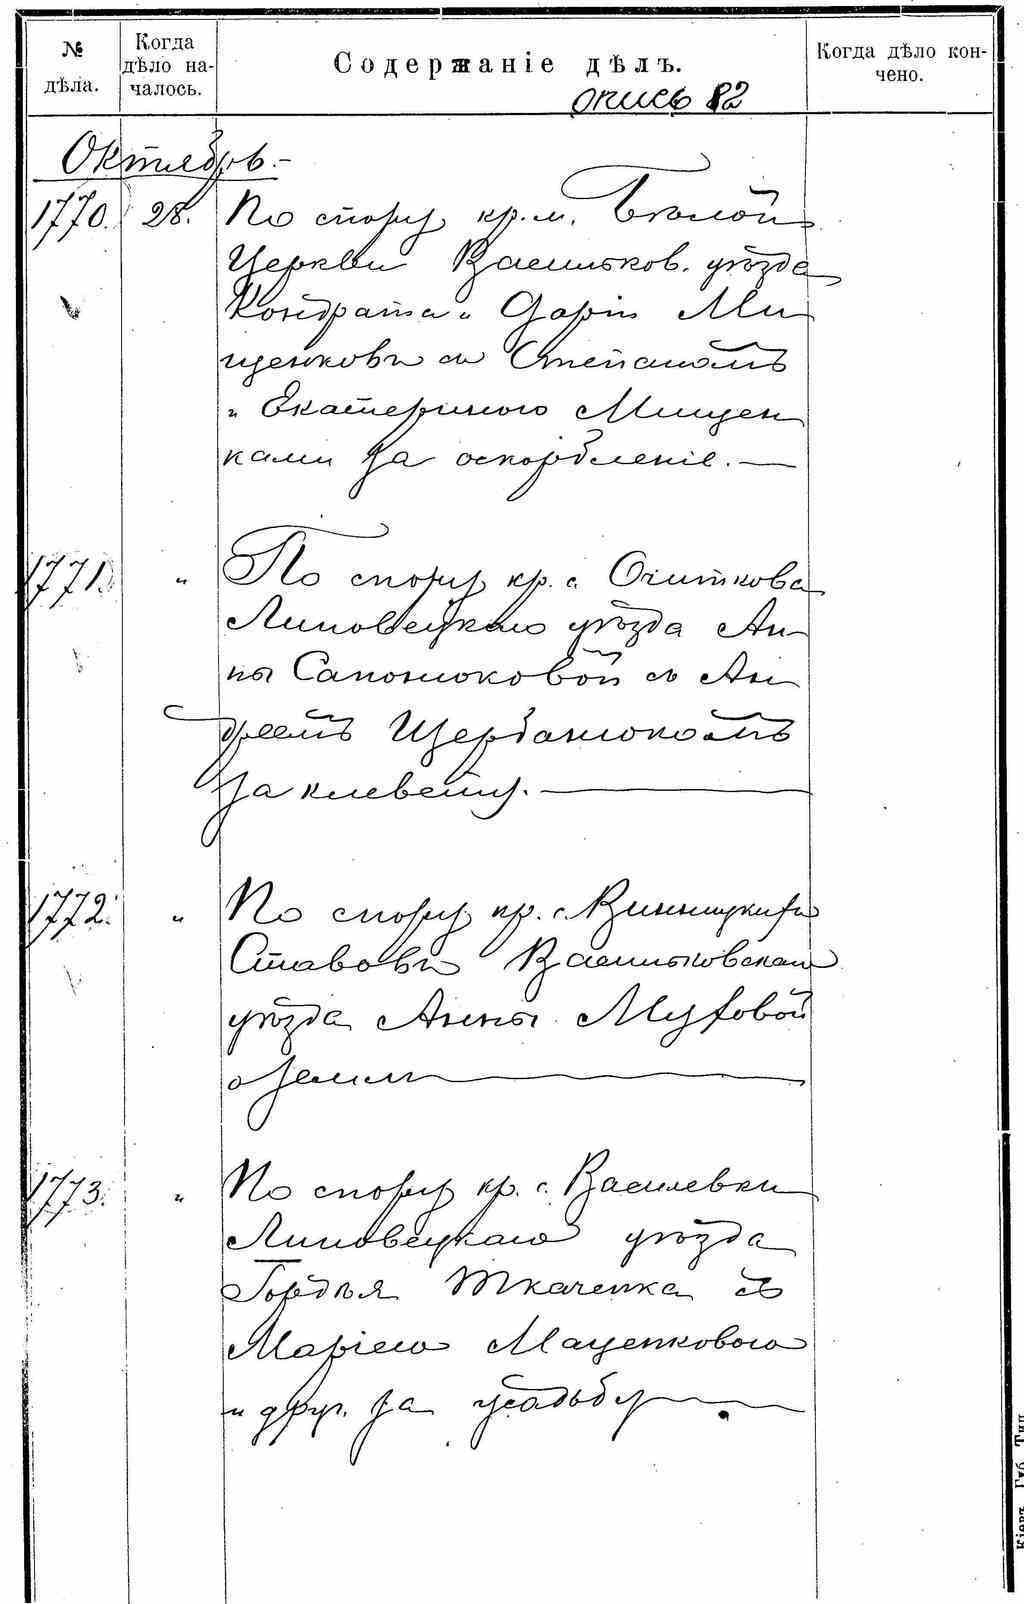 № дѣла.
Когда дѣло на-
чалось.
Содержаніе дѣлъ.
Когда дѣло кон-
чено.
опись 82
Октябрь.-
1770. 28. По спору кр. м. Бѣлой
Церкви Васильков. уѣзда
Кондрата и Дарiи Ми
щенковъ съ Степаномъ
и Екатериною Мищен
ками за оскорбленіе.—
1771. " По спору кр. с. Очиткова
Липовецкаго уѣзда Ан-
ны Сапонюковой съ Ан
дреемъ Щербанюкомъ
за клевету.—
1772. " По спору кр. с. Винницкихъ
Ставовъ Васильковскаго
уѣзда Анны Муховой
о землѣ—
1773. " По спору кр. с. Василевки
Липовецкаго уѣзда
Гордѣя Ткаченка съ
Маріею Маценковою
и друг. за усадьбу—
Кіевъ. Губ. Тип.